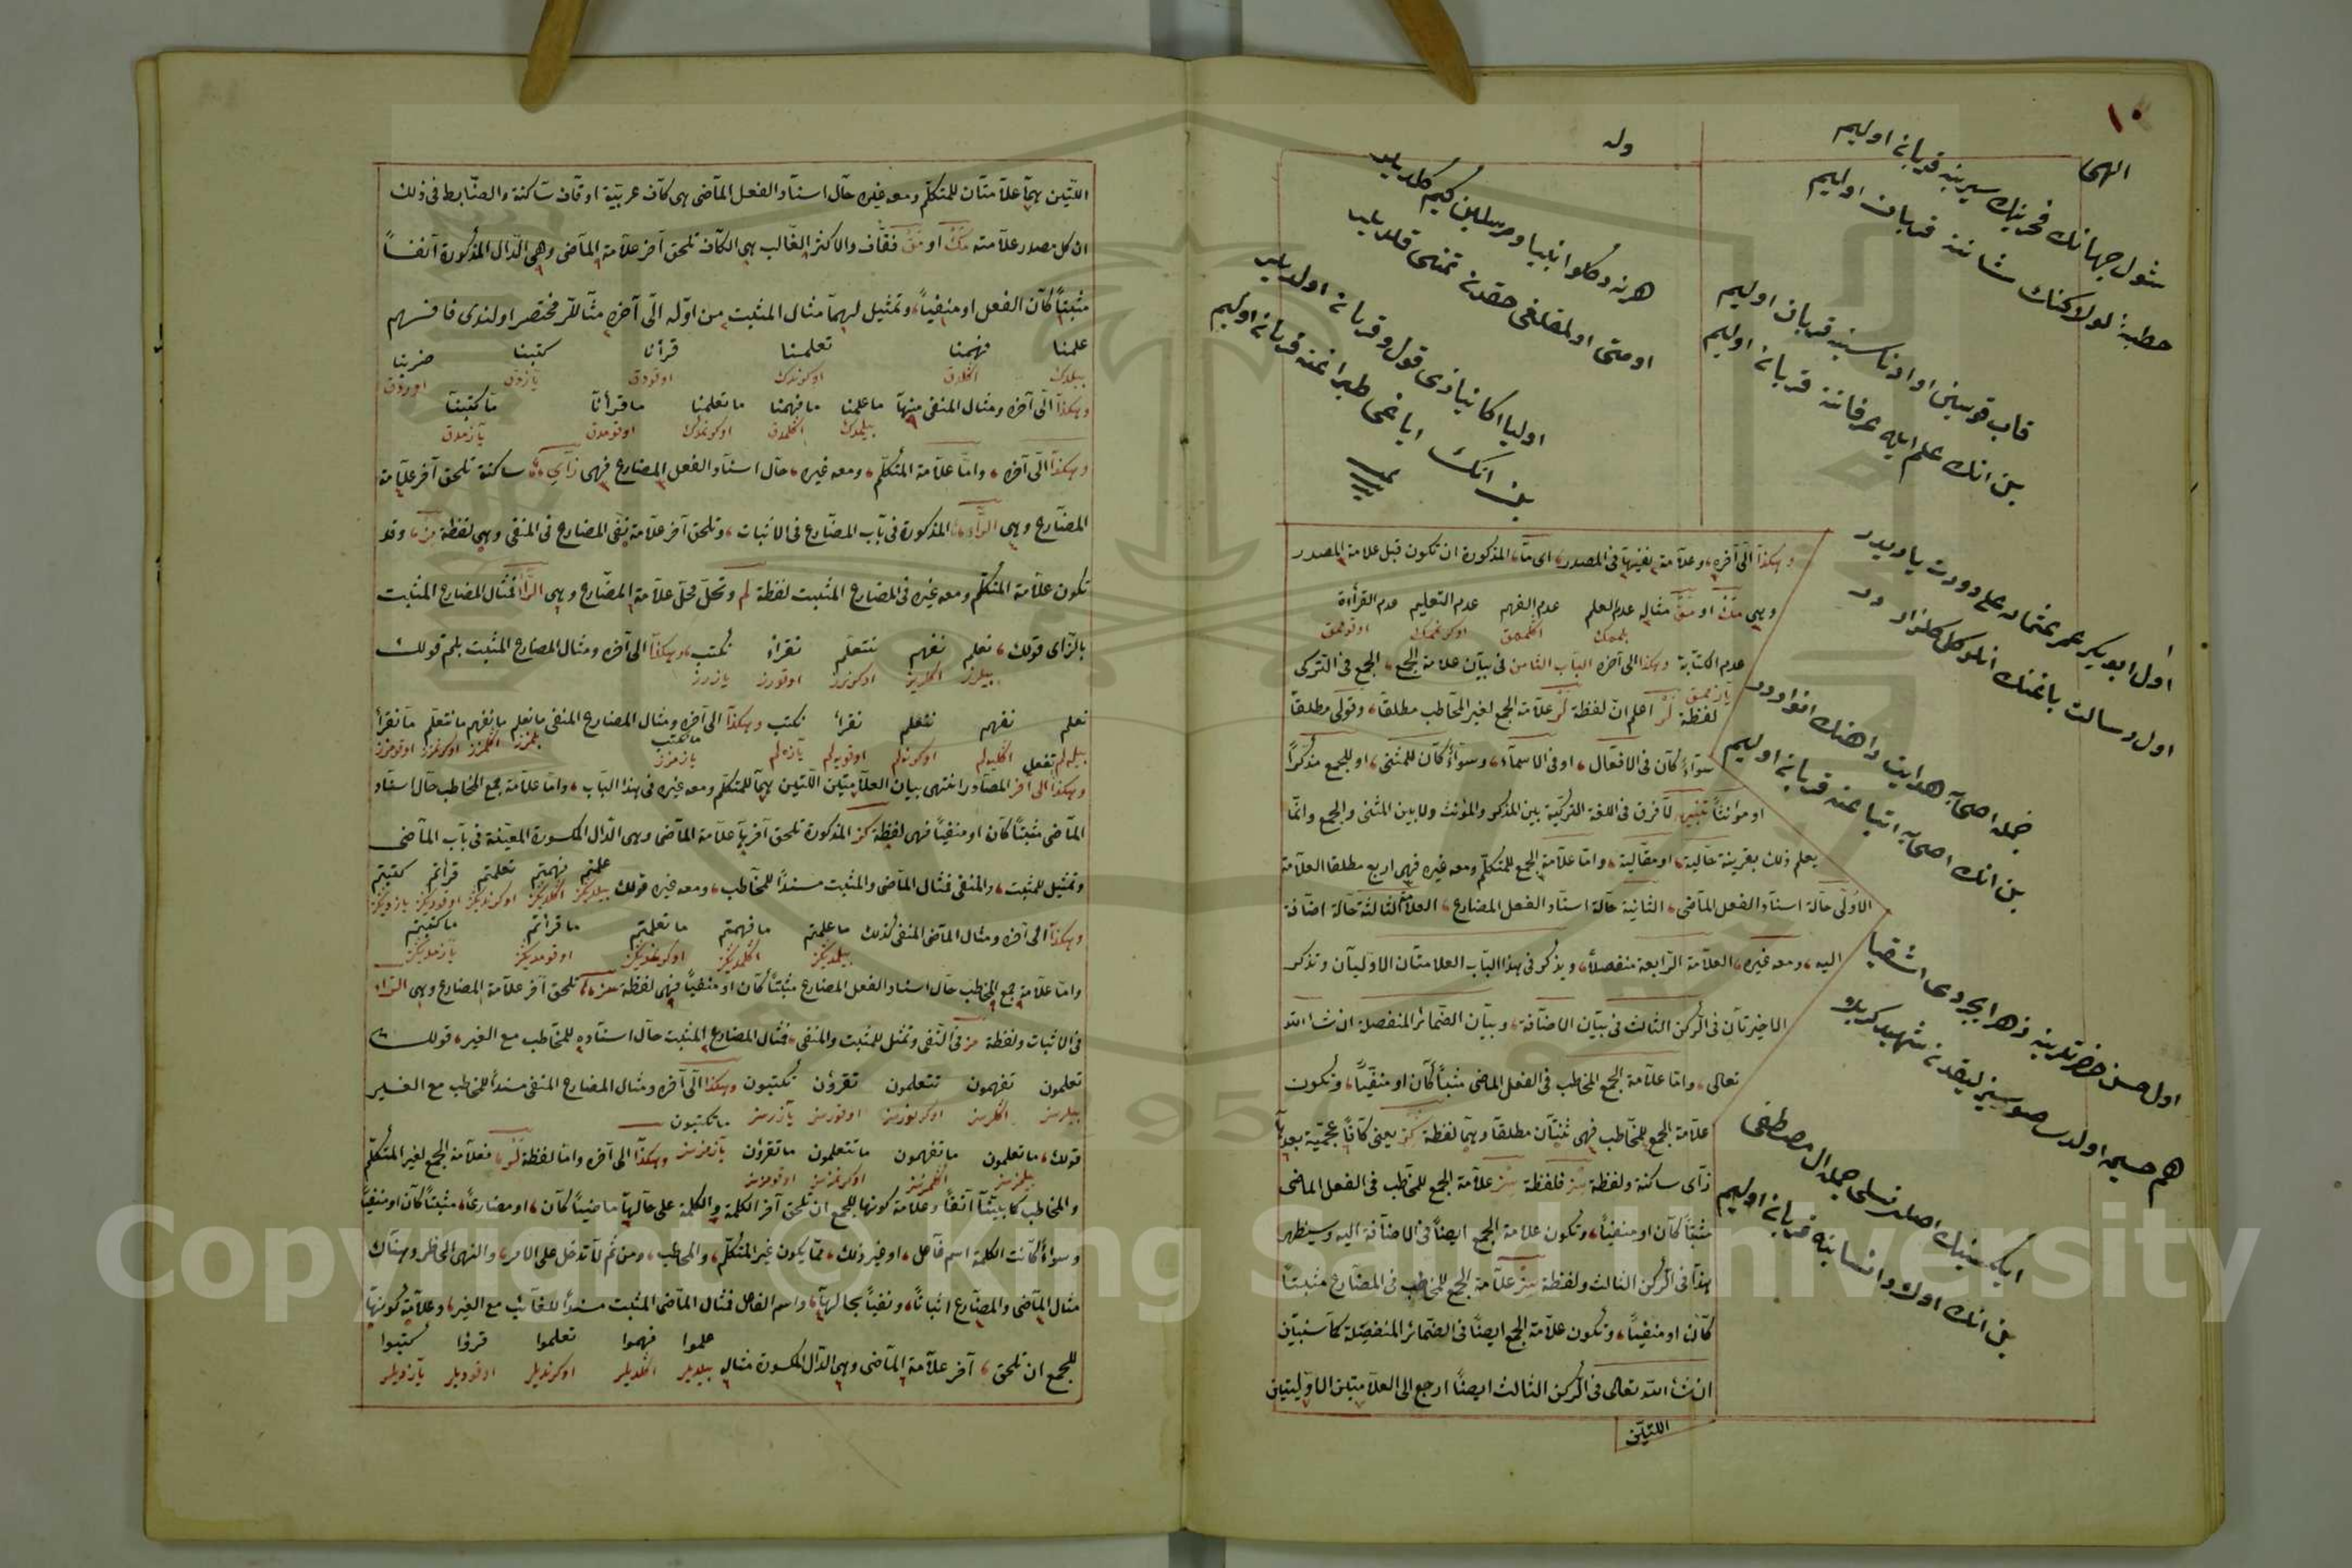 ١٠
الهى
شول جهانك فخرينك سيرينه قربان اوليم
خطبهٔ لولاكنك شاننه قربان اوليم
قاب قوسين او ادناسنه قربان اوليم
بن انك علم ايله عرفاننه قربان اوليم
وله
هرنه دكلو انبيا و مرسلين كيم كلديلر
امتى اولمقلغى حقدن تمنى قلديلر
اوليا اكا نيازى قول و قربان اولديلر
بن انك اياغى طپراغنه قربان اوليم
اول ابو بكر عمر عثمان على دورت يار ايدر
اول رسالت باغنك انلر كل كلزارى در
جمله اصحابه هدايت راهنك انوارى در
بن انك اصحابه اتباعنه قربان اوليم
اول حسن حضرتلرينه زهر ايچردى اشقيا
هم حسين اولدى صوسزلقدن شهيد كربلا
ايكيسينك اصلى نسلى جمله ال مصطفى
بن انك اولاد و انسابنه قربان اوليم
وهكذا الى آخره وعلامة نفيها فى المصدر اى ما المذكورة ان تكون قبل علامة المصدر
وهى مك او مق مثاله عدم العلم عدم الفهم عدم التعليم عدم القرأة
بلممك اكلممق اوكرنممك اوقومامق
عدم الكتابة وهكذا الى آخره الباب الثامن فى بيان علامة الجمع الجمع فى التركى
يازممق
لفظة لر اعلم ان لفظة لر علامة الجمع لغير المخاطب مطلقا وقولى مطلقا
سواء كان فى الافعال او فى الاسماء وسواء كان للمثنى او للجمع مذكرا
او مؤنثا تنبيه لا فرق فى اللغة التركية بين المذكر والمؤنث ولا بين المثنى والجمع وانما
يعلم ذلك بقرينة حالية او مقالية واما علامة الجمع للمتكلم ومعه غيره فهى اربع مطلقا العلامة
الاولى حالة اسناد الفعل الماضى الثانية حالة اسناد الفعل المضارع العلامة الثالثة حالة اضافة
اليه ومعه غيره العلامة الرابعة منفصلا ويذكر فى هذا الباب العلامتان الاوليان وتذكر
الاخيرتان فى الركن الثالث فى بيان الاضافة وبيان الضمائر المنفصلة ان شاء الله
تعالى واما علامة الجمع المخاطب فى الفعل الماضى مثبتا كان او منفيا وتكون
علامة الجمع للمخاطب فهى ثنتان مطلقا وهما لفظة كز يعنى كافا عجمية بعدها
زاى ساكنة ولفظة سز فلفظة سز علامة الجمع للمخاطب فى الفعل الماضى
مثبتا كان او منفيا وتكون علامة الجمع ايضا فى الاضافة اليه وسيظهر
هذا فى الركن الثالث ولفظة سز علامة الجمع للمخاطب فى المضارع مثبتا
كان او منفيا وتكون علامة الجمع ايضا فى الضمائر المنفصلة كما سنبين
ان شاء الله تعالى فى الركن الثالث ايضا ارجع الى العلامتين الاوليتين
اللتين
اللتين هما علامتان للمتكلم ومعه غيره حال اسناد الفعل الماضى هى كاف عربية او قاف ساكنة والضابط فى ذلك
ان كل مصدر علامته مك او مق فقاف والاكثر الغالب هى الكاف تلحق آخر علامة الماضى وهى الدال المذكورة آنفا
مثبتا كان الفعل او منفيا وتمثيل لهما مثال المثبت من اوله الى آخره مثاللر مختصر اولندى فافهم
علمنا فهمنا تعلمنا قرأنا كتبنا ضربنا
بيلدك اكلدق اوكرندك اوقودق يازدق اوردق
وهكذا الى آخره ومثال المنفى منها ما علمنا ما فهمنا ما تعلمنا ما قرأنا ما كتبنا
بيلمدك اكلمدق اوكرنمدك اوقومدق يازمدق
وهكذا الى آخره واما علامة المتكلم ومعه غيره حال اسناد الفعل المضارع فهى زاى ساكنة تلحق آخر علامة
المضارع وهى الراء المذكورة فى باب المضارع فى الاثبات وتلحق آخر علامة نفى المضارع فى المنفى وهى لفظة مز وقد
تكون علامة المتكلم ومعه غيره فى المضارع المثبت لفظة لم وتحل محل علامة المضارع وهى الراء فمثال المضارع المثبت
بالزاى قولك نعلم نفهم نتعلم نقرأ نكتب وهكذا الى آخره ومثال المضارع المثبت بلم قولك
بيلرز اكلرز اوكرنرز اوقورز يازرز
نعلم نفهم نتعلم نقرأ نكتب وهكذا الى آخره ومثال المضارع المنفى ما نعلم ما نفهم ما نتعلم ما نقرأ
بيله لم اكليه لم اوكرنه لم اوقويه لم يازه لم ما نكتب يازمزز بلمزز اكلمزز اوكرنمزز اوقومزز
وهكذا الى آخر المصادر انتهى بيان العلامتين اللتين هما للمتكلم ومعه غيره فى هذا الباب واما علامة جمع المخاطب حال اسناد
الماضى مثبتا كان او منفيا فهى لفظة كز المذكورة تلحق آخرها علامة الماضى وهى الدال المكسورة المعينة فى باب الماضى
وتمثيل للمثبت والمنفى فمثال الماضى والمثبت مسندا للمخاطب ومعه غيره قولك علمتم فهمتم تعلمتم قرأتم كتبتم
بيلديكز اكلديكز اوكرنديكز اوقوديكز يازديكز
وهكذا الى آخره ومثال الماضى المنفى كذلك ما علمتم ما فهمتم ما تعلمتم ما قرأتم ما كتبتم
بيلمديكز اكلمديكز اوكرنمديكز اوقومديكز يازمديكز
واما علامة جمع المخاطب حال اسناد الفعل المضارع مثبتا كان او منفيا فهى لفظة سز تلحق آخر علامة المضارع وهى الراء
فى الاثبات ولفظة مز فى النفى وتمثل للمثبت والمنفى فمثال المضارع المثبت حال اسناده للمخاطب مع الغير قولك
تعلمون تفهمون تتعلمون تقرؤن تكتبون وهكذا الى آخره ومثال المضارع المنفى مسندا للمخاطب مع الغير
بيلرسز اكلرسز اوكرنورسز اوقورسز يازرسز
قولك ما تعلمون ما تفهمون ما تتعلمون ما تقرؤن ما تكتبون وهكذا الى آخره واما لفظة لر فعلامة الجمع لغير المتكلم
بيلمزسز اكلمزسز اوكرنمزسز اوقومزسز يازمزسز
والمخاطب كما بينا آنفا وعلامة كونها للجمع ان تلحق آخر الكلمة والكلمة على حالها ماضيا كان او مضارعا مثبتا كان او منفيا
وسواء كانت الكلمة اسم فاعل او غير ذلك مما يكون غير المتكلم والمخاطب ومن ثم لا تدخل على الامر والنهى الحاظر وهناك
مثال الماضى والمضارع اثباتا ونفيا بحالها واسم الفاعل فمثال الماضى المثبت مسندا للغائب مع الغير وعلامة كونها
للجمع ان تلحق آخر علامة الماضى وهى الدال المكسورة مثاله علموا فهموا تعلموا قرؤا كتبوا
بيلديلر اكلديلر اوكرنديلر اوقوديلر يازديلر
Copyright © King Saud University